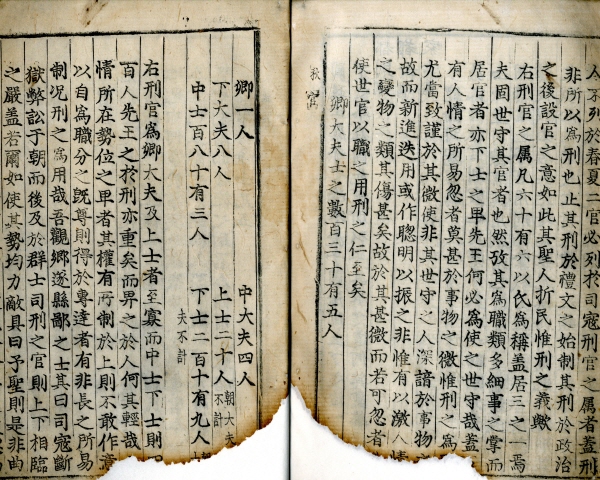 人不列於春夏二官必列於司寇刑官之属者蓋刑
非所以為刑也止其刑於禮文之始制其刑於政治
之後設官之意如此其聖人折民惟刑之義歟
右刑官之属凡六十有六以氏為稱盖居三之一焉
夫固世守其官者也然攷其為職類多細事之掌而
居官者亦下士之卑先王何必為使之世守哉蓋
有人情之所易忽者莫甚於事物之微惟刑之為
尤當致謹於其微使非其世守之人深諳於事物之
故而新進迭用或作聦明以振之非惟有以激人情
之變物之類其傷甚矣故於其甚微而若可忽者
使世官以職之用刑之仁至矣
卿大夫士之數百三十有五人
秋官
卿一人
中大夫四人
下大夫八人
上士二十人 朝大夫 不計
中士百八十有三人
下士二百十有九人
夫不計
右刑官為卿大夫及上士者至寡而中士下士則
百人先王之於刑亦重矣而畀之於人何其輕哉
情所在勢位之卑者其權有所制於上則不敢作意
以自為職分之既尊則得於專達者有非長之所易
制况刑之為用哉吾觀鄉遂縣鄙之士其曰司寇斷
獄弊訟于朝而後及於群士司刑之官則上下相臨
之嚴盖若爾如使其勢均力敵具曰予聖則是非曲